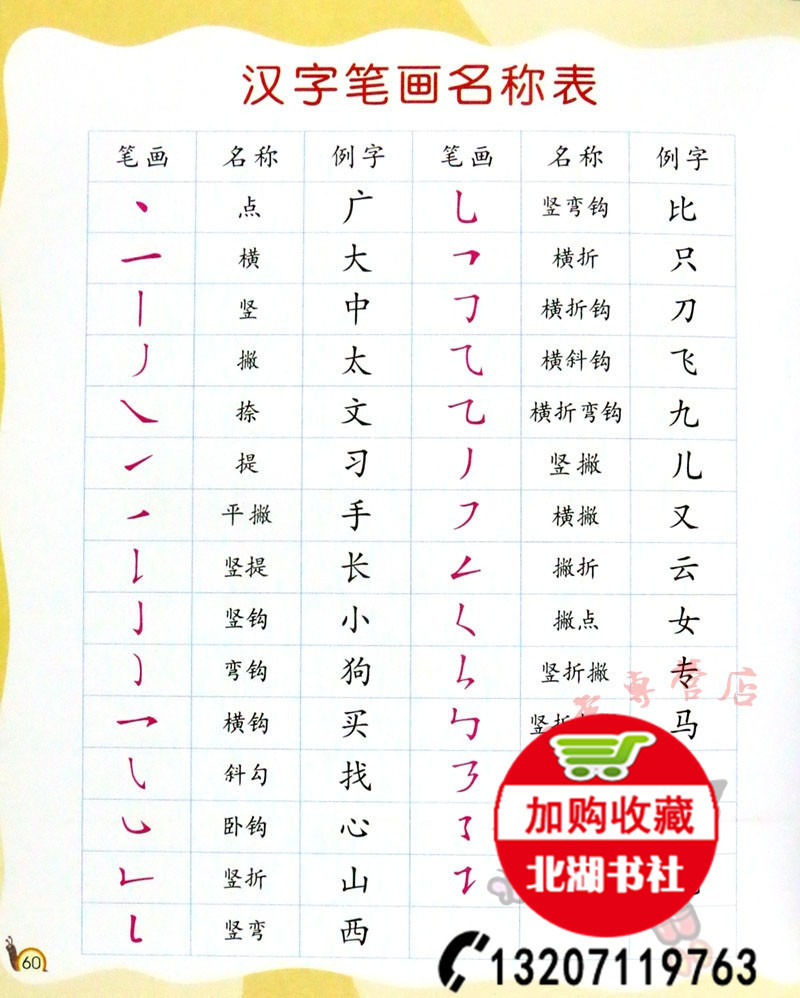 汉字笔画名称表
笔画 名称 例字 笔画 名称 例字
丶 点 广 乚 竖弯钩 比
一 横 大 𠃍 横折 只
丨 竖 中 𠃌 横折钩 刀
丿 撇 太 ⺄ 横斜钩 飞
㇏ 捺 文 乙 横折弯钩 九
㇀ 提 习 丿 竖撇 儿
㇒ 平撇 手 ㇇ 横撇 又
𠄌 竖提 长 𠃋 撇折 云
亅 竖钩 小 𡿨 撇点 女
㇁ 弯钩 狗 ㇓ 竖折撇 专
乛 横钩 买 ㇉ 竖折 马
㇂ 斜勾 找 ㇋
㇃ 卧钩 心 ㇌
𠃊 竖折 山 ㇍
㇄ 竖弯 西
專营店
加购收藏
北湖书社
60
13207119763